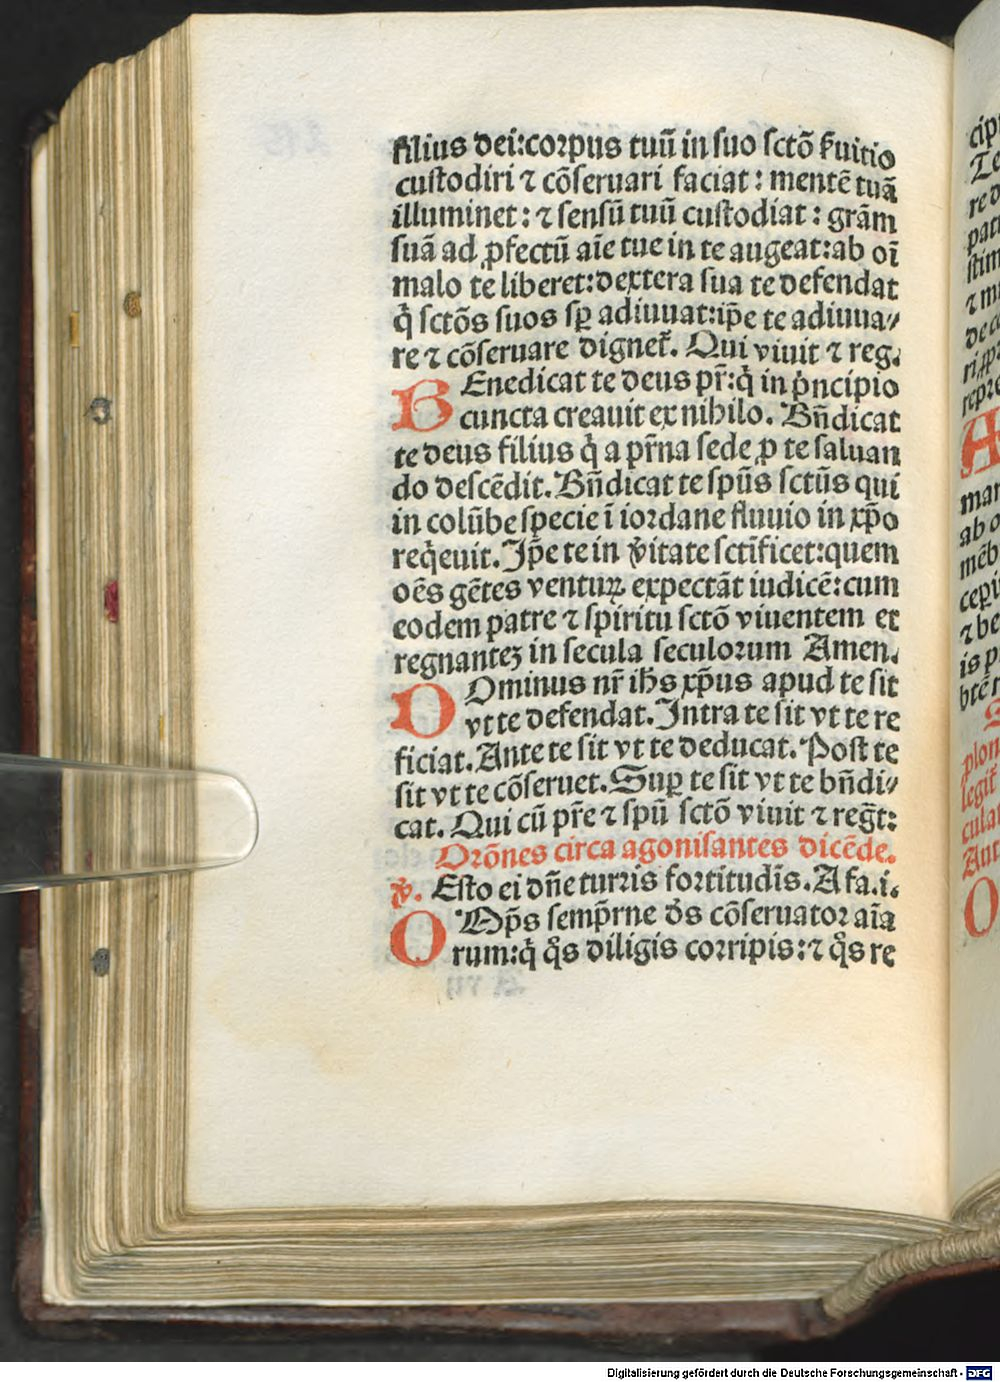 filius dei:corpus tuū in suo sctō ẜuitio
custodiri ⁊ cōseruari faciat: mentē tuā
illuminet: ⁊ sensū tuū custodiat: grām
suā ad ꝓfectū aīe tue in te augeat:ab oī
malo te liberet:dextera sua te defendat
q̇ sctōs suos sꝑ adiuuat:ip̄e te adiuua/
re ⁊ cōseruare dignet᷑. Qui viuit ⁊ reg.
BEnedicat te deus pr̄:q̇ in pͥncipio
cuncta creauit ex nihilo. Bn̄dicat
te deus filius q̇ a pr̄na sede ꝓ te saluan
do descēdit. Bn̄dicat te spūs sctūs qui
in colūbe specie ī iordane fluuio in xp̄o
req̇euit. Ip̄e te in v̄itate sctīficet:quem
oēs gētes venturꝝ expectāt iudicē:cum
eodem patre ⁊ spiritu sctō viuentem et
regnanteꝫ in secula seculorum Amen.
DOminus nr̄ ih̄s xp̄us apud te sit
vt te defendat. Intra te sit vt te re
ficiat. Ante te sit vt te deducat. Post te
sit vt te cōseruet. Suꝑ te sit vt te bn̄di/
cat. Qui cū pr̄e ⁊ spū sctō viuit ⁊ reḡt:
Orōnes circa agonisantes dicēde.
℣. Esto ei dn̄e turris fortitudīs. A fa.i.
OOp̄s semp̄rne ds̄ cōseruator aīa
rum:q̇ qͦs diligis corripis:⁊ qͦs re
cip
Te
re d
pati
stim
⁊ mi
de co
repre
A
mar
ab o
mēb
ceꝑi
⁊ be
is p
plon
legit᷑
cula
Ant
O
Digitalisierung gefördert durch die Deutsche Forschungsgemeinschaft - DFG